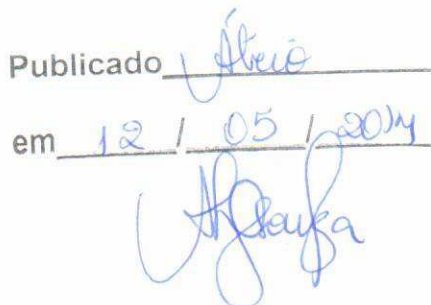 Publicado Átrio
em 12 / 05 / 2014